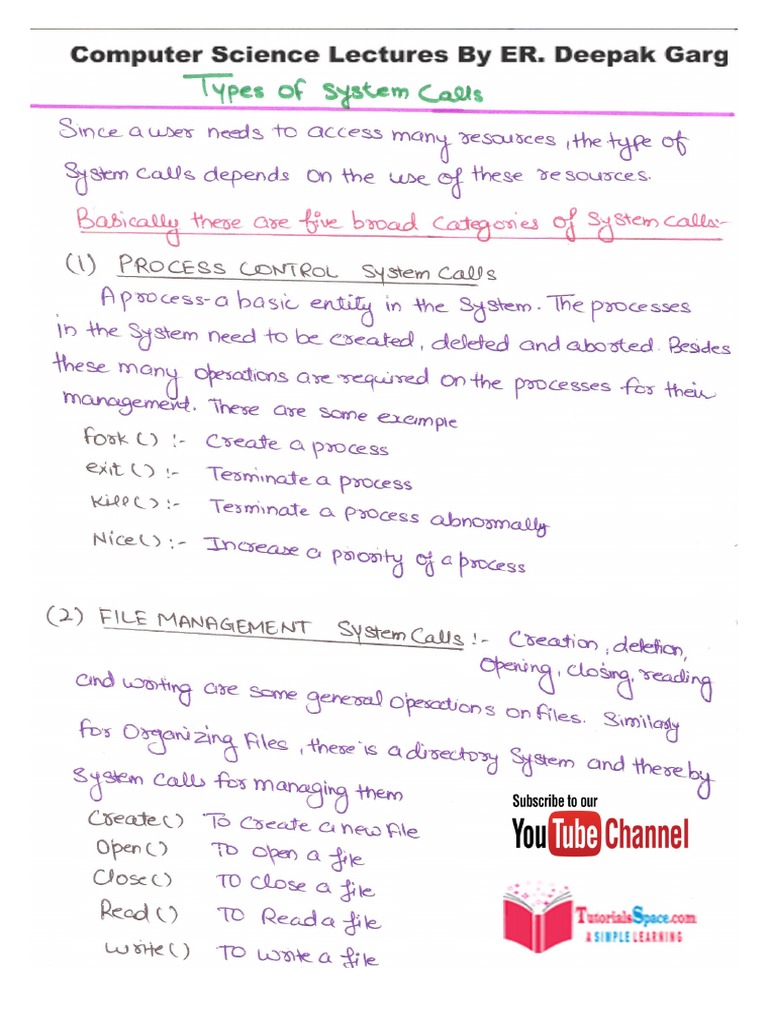 Computer Science Lectures By ER. Deepak Garg
Types of System Calls
Since a user needs to access many resources, the type of
System calls depends on the use of these resources.
Basically there are five broad categories of System calls:-
(1) PROCESS CONTROL System Calls
A process - a basic entity in the System. The processes
in the System need to be created, deleted and aborted. Besides
these many operations are required on the processes for their
management. There are some exemple
fork() :- Create a process
exit() :- Terminate a process
Kill() :- Terminate a process abnormally
Nice() :- Increase a priority of a process
(2) FILE MANAGEMENT System Calls :- Creation, deletion,
opening, closing, reading
and writing are some general operations on files. Similarly
for Organizing files, there is a directory System and thereby
System calls for managing them
Create() To Create a new file
Open() To open a file
Close() To close a file
Read() To Read a file
Write() To write a file
Subscribe to our
YouTube Channel
TutorialsSpace.com
A SIMPLE LEARNING